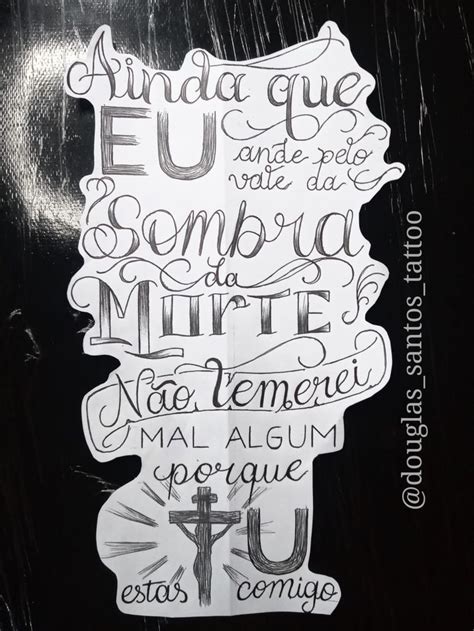 Ainda que
EU ande pelo
vale da
Sombra
da
MORTE
Não Temerei
MAL ALGUM
porque
TU
estas comigo
@douglas_santos_tattoo